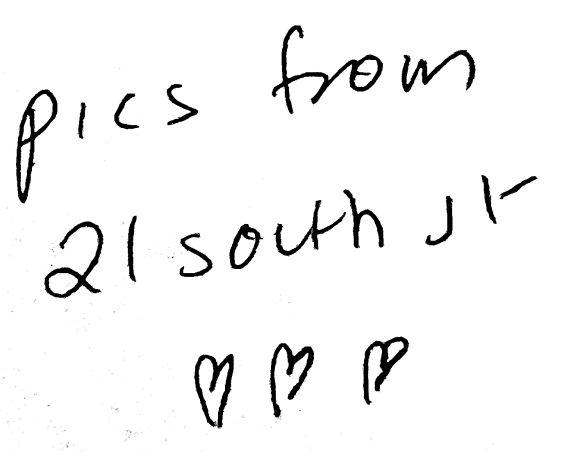 pics from
21 south st
♡ ♡ ♡